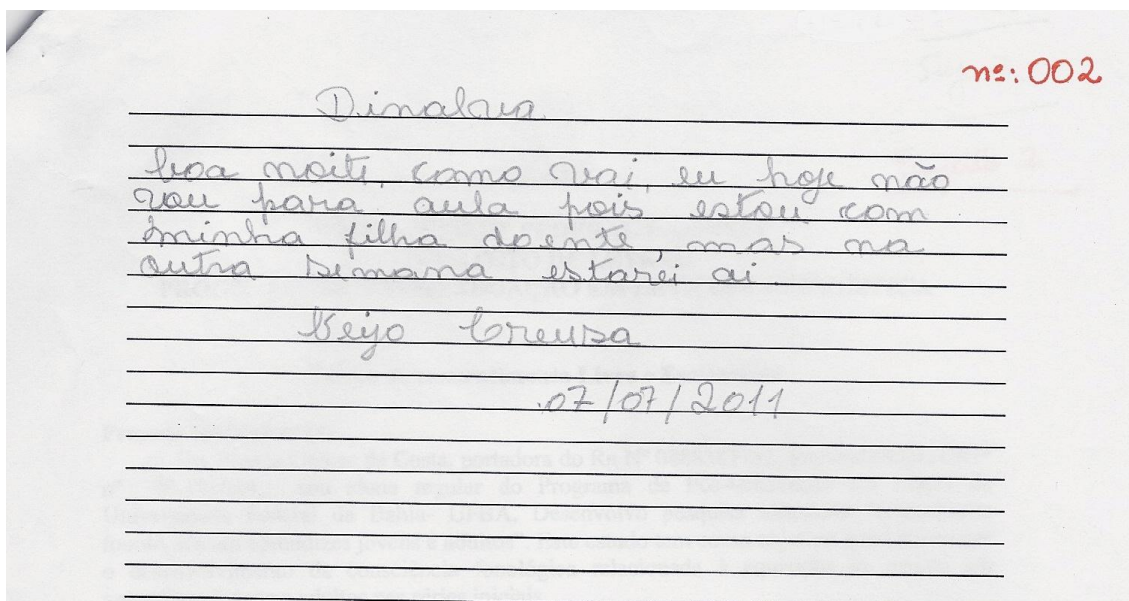 nº: 002
Dinalva
boa noite, como vai, eu hoje não
vou para aula pois estou com
minha filha doente, mas na
outra semana estarei ai
Beijo Creusa
07/07/2011